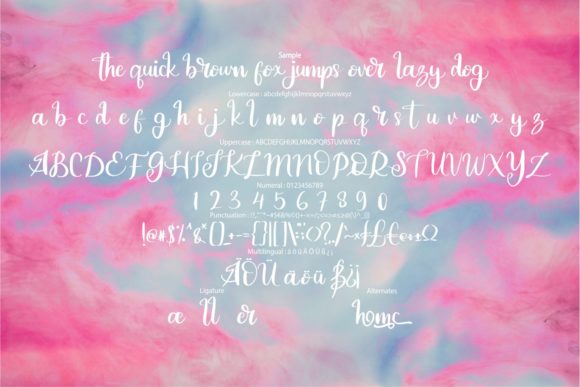 Sample
the quick brown fox jumps over lazy dog
Lowercase : abcdefghijklmnopqrstuvwxyz
a b c d e f g h i j k l m n o p q r s t u v w x y z
Uppercase : ABCDEFGHIJKLMNOPQRSTUVWXYZ
ABCDEFGHIJKLMNOPQRSTUVWXYZ
Numeral : 0123456789
1 2 3 4 5 6 7 8 9 0
Multilingual : ä ö ü Ä Ö Ü ß ¿ ¡
ÄÖÜ äöü ß¿¡
Ligature Alternates
æ ll er home